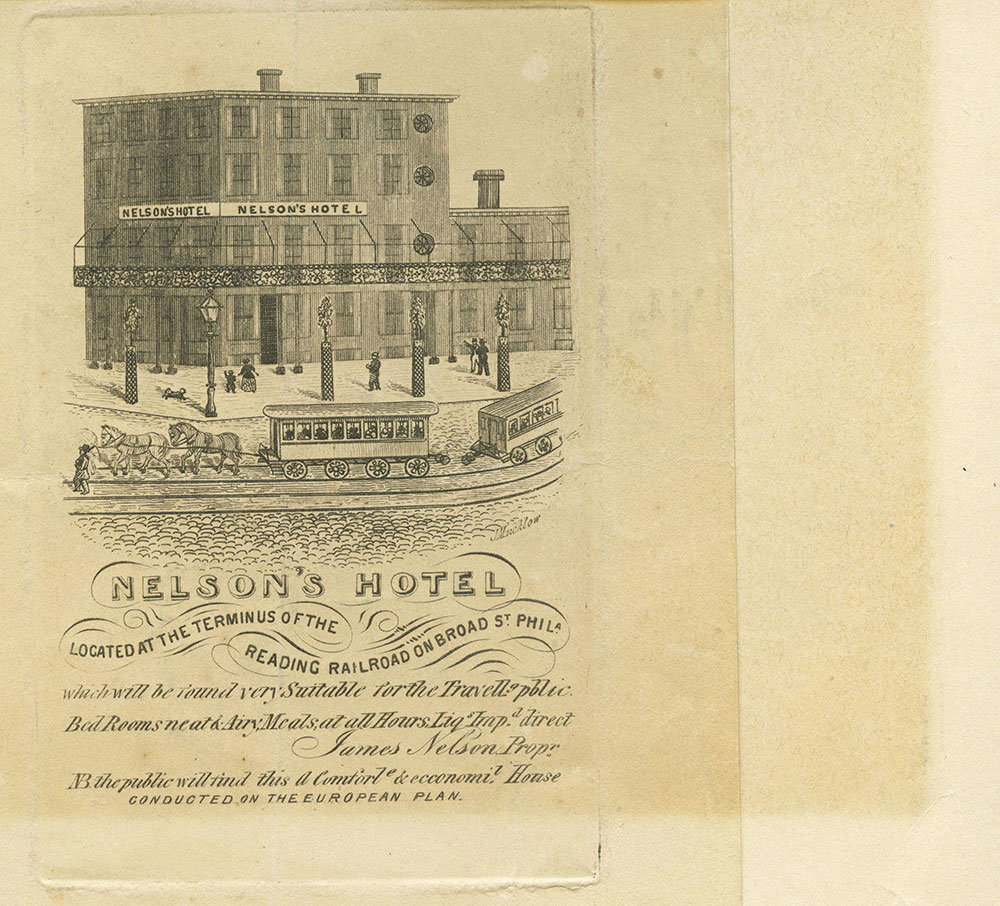 NELSON'S HOTEL NELSON'S HOTEL
J Mucklow
NELSON'S HOTEL
LOCATED AT THE TERMINUS OF THE
READING RAILROAD ON BROAD ST PHILA
which will be found very Suitable for the Travellg pblic.
Bed Rooms neat & Airy, Meals, at all Hours. Liqs Impd direct
James Nelson, Propr
NB. the public will find this a Comforle & ecconomil House
CONDUCTED ON THE EUROPEAN PLAN.